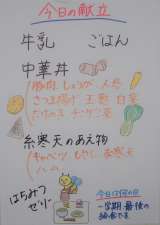 今日の献立
牛乳　ごはん
中華丼
豚肉 しょうが 人参
さつま揚げ 玉葱 白菜
たけのこ チンゲン菜
糸寒天のあえ物
キャベツ もやし 糸寒天
ハム
はちみつ
ゼリー
今日は
一学期最後の
給食です